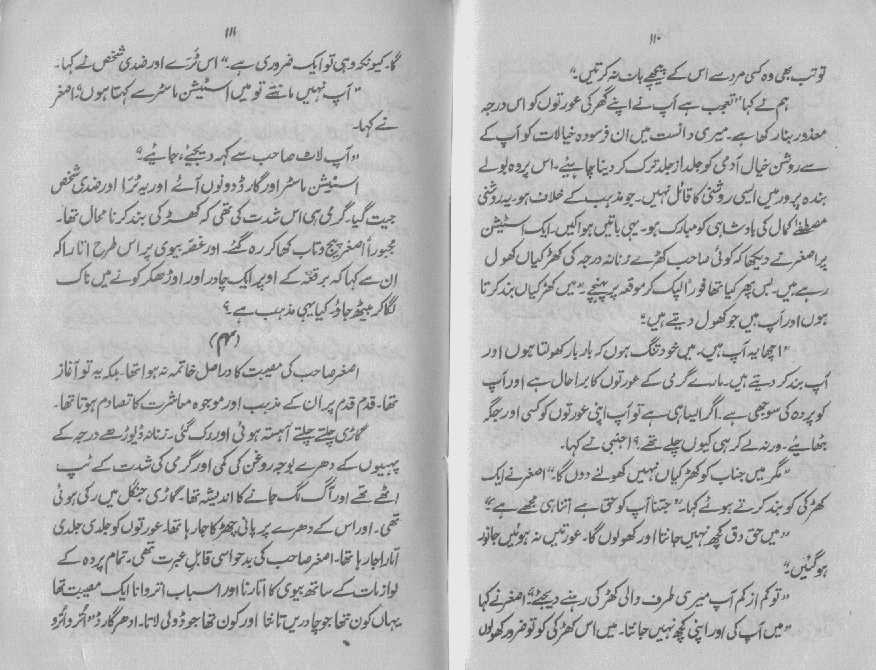 ۱۱۰
تو تب بھی وہ کسی مرد سے اس کے پیچھے بات نہ کرتیں۔"
ہم نے کہا "تعجب ہے آپ نے اپنے گھر کی عورتوں کو اس درجہ
معذور بنا رکھا ہے۔ میری دانست میں ان فرسودہ خیالات کو آپ کے
سے روشن خیال آدمی کو جلد از جلد ترک کر دینا چاہیئے۔ اس پردہ بولے
بندہ پرور میں ایسی روشنی کا قائل نہیں۔ جو مذہب کے خلاف ہو۔ یہ روشنی
مصطفےٰ کمال کی بادشاہی کو مبارک ہو۔ یہی باتیں ہوا کیں۔ ایک اسٹیشن
پر اصغر نے دیکھا کہ کوئی صاحب کھڑے زنانہ درجہ کی کھڑکیاں کھول
رہے ہیں۔ بس پھر کیا تھا فوراً لپک کر موقعہ پر پہنچے۔ "میں کھڑکیاں بند کرتا
ہوں اور آپ ہیں جو کھول دیتے ہیں"
"اچھا یہ آپ ہیں۔ میں خود تنگ ہوں کہ بار بار کھولتا ہوں اور
آپ بند کر دیتے ہیں۔ مارے گرمی کے عورتوں کا برا حال ہے اور آپ
کو پردہ کی سوجھی ہے۔ اگر ایسا ہی ہے تو آپ اپنی عورتوں کو کسی اور جگہ
بٹھائیے۔ ورنہ لے کر ہی کیوں چلے تھے؟" اجنبی نے کہا۔
"مگر میں جناب کو کھڑکیاں نہیں کھولنے دوں گا۔" اصغر نے ایک
کھڑکی کو بند کرتے ہوئے کہا۔ "جتنا آپ کو حق ہے اتنا ہی مجھے ہے"
"میں حق وق کچھ نہیں جانتا اور کھولوں گا۔ عورتیں نہ ہوئیں جانور
ہو گئیں۔"
"تو کم از کم آپ میری طرف والی کھڑکی رہنے دیجئے" اصغر نے کہا
"میں آپ کی اور اپنی کچھ نہیں جانتا۔ میں اس کھڑکی کو تو ضرور کھولوں
۱۱۱
گا۔ کیونکہ وہی تو ایک ضروری ہے۔" اس ٹرے اور ضدی شخص نے کہا۔
"آپ نہیں مانتے تو میں اسٹیشن ماسٹر سے کہتا ہوں" اصغر
نے کہا۔
"آپ لاٹ صاحب سے کہہ دیجئے، جائیے"
اسٹیشن ماسٹر اور گارڈ دونوں آئے اور یہ ٹرا اور ضدی شخص
جیت گیا۔ گرمی ہی اس شدت کی تھی کہ کھڑکی بند کرنا محال تھا۔
مجبوراً اصغر پیچ و تاب کھا کر رہ گئے۔ اور غصہ بیوی پر اس طرح اتارا کہ
ان سے کہا کہ برقعہ کے اوپر ایک چادر اور اوڑھ کر کونے میں ناک
لگا کر بیٹھ جاؤ۔ کیا یہی مذہب ہے؟
(۴)
اصغر صاحب کی مصیبت کا دراصل خاتمہ نہ ہوا تھا۔ بلکہ یہ تو آغاز
تھا۔ قدم قدم پر ان کے مذہب اور موجودہ معاشرت کا تصادم ہوتا تھا۔
گاڑی چلتے چلتے آہستہ ہوئی اور رک گئی۔ زنانہ ڈیوڑھے درجہ کے
پہیوں کے دھرے بوجہ روغن کی کمی اور گرمی کی شدت کے تپ
اٹھے تھے اور آگ لگ جانے کا اندیشہ تھا۔ گاڑی جنگل میں رکی ہوئی
تھی۔ اور اس کے دھرے پر پانی چھڑکا جا رہا تھا۔ عورتوں کو جلدی جلدی
اتارا جا رہا تھا۔ اصغر صاحب کی بدحواسی قابل عبرت تھی۔ تمام پردہ کے
لوازمات کے ساتھ بیوی کا اتارنا اور اسباب اتروانا ایک مصیبت تھا
یہاں کون تھا جو چادریں تانتا اور کون تھا جو ڈولی لاتا۔ ادھر گارڈ "اترو اترو